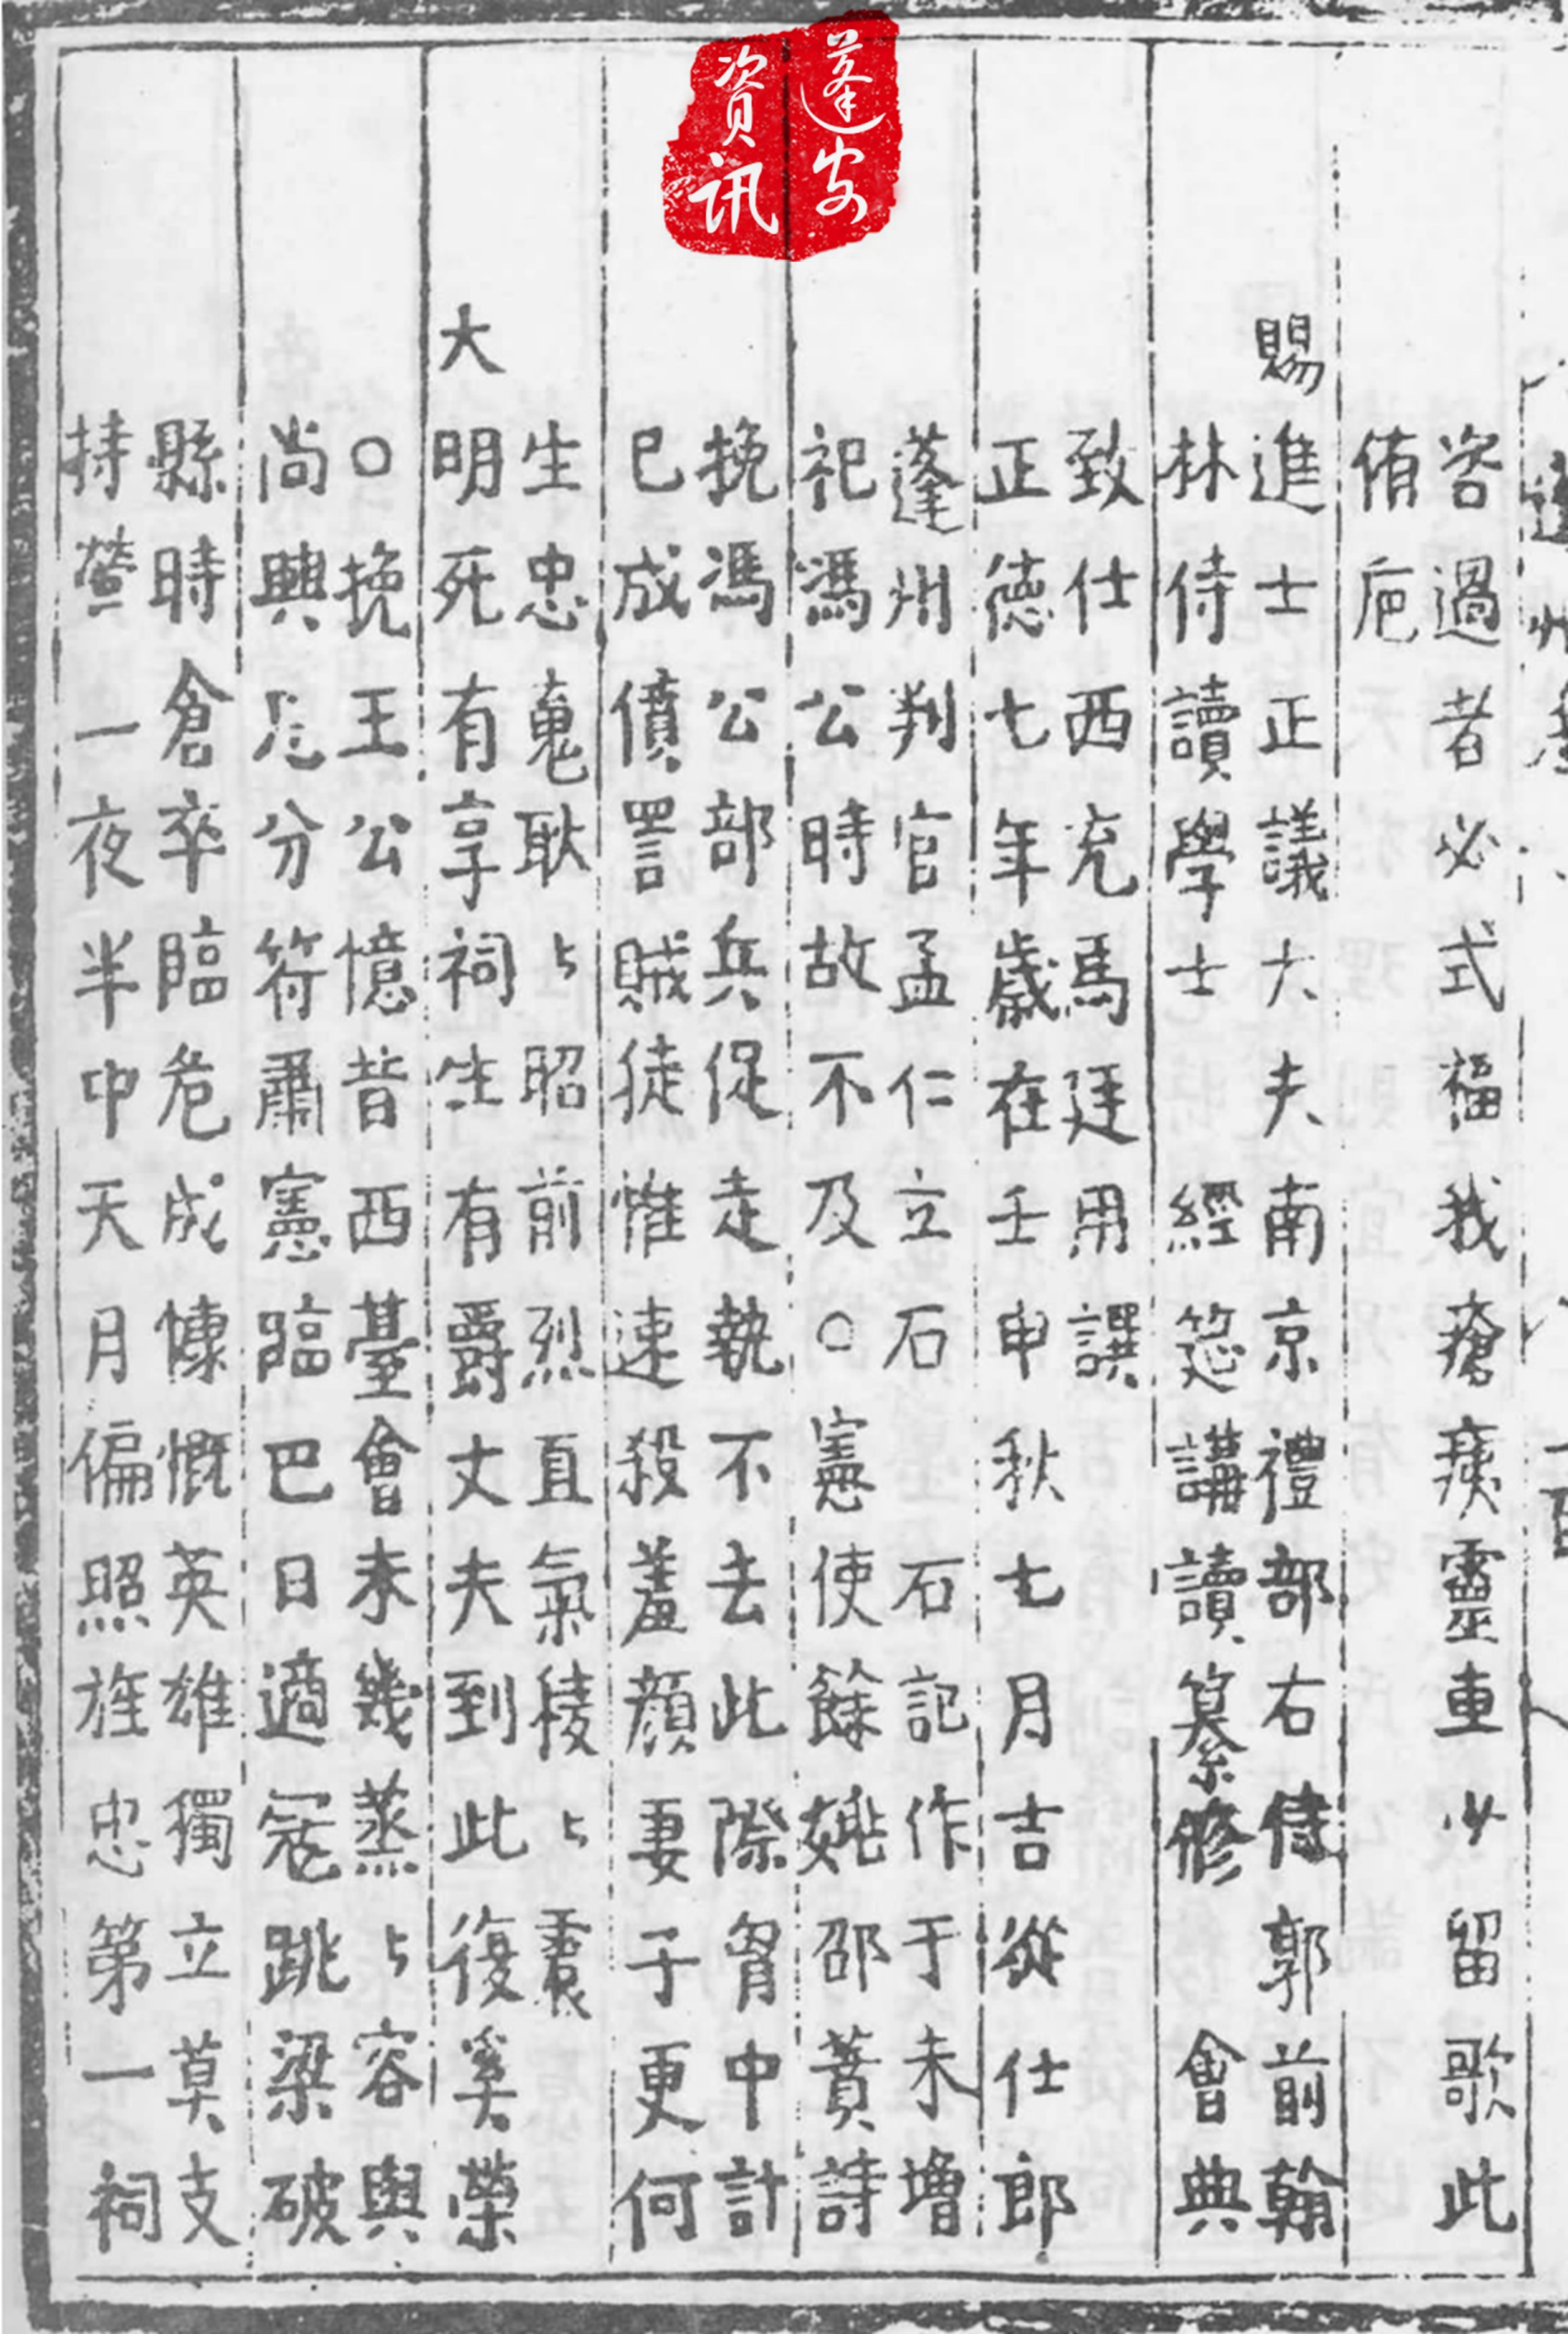 蓬安
資訊
咨過者必式福我瘡痍靈車少留歌此
侑巵
賜進士正議大夫南京禮部右侍郭前翰
林侍讀學士 經筵講讀纂修 會典
致仕西充馬廷用譔
正德七年歲在壬申秋七月吉從仕郎
蓬州判官孟仁立石 石記作于未增
祀馮公時故不及○憲使餘姚邵蕡詩
挽馮公部兵促走執不去此際胷中計
已成憤詈賊徒惟速殺羞顔妻子更何
生忠䰟耿〻昭前烈直氣稜〻裹
大明死有享祠生有爵丈夫到此復奚榮
○挽王公憶昔西臺會未幾蒸〻容與
尚興分符肅憲臨巴日適冦跳梁破
縣時倉卒臨危成慷慨英雄獨立莫支
持螢一夜半中天月偏照旌忠第一祠